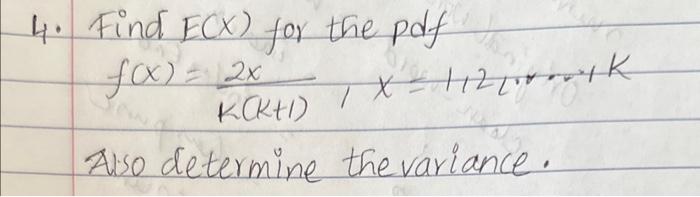 4. Find E(X) for the pdf
f(x) = 2x / K(K+1) , x = 1,2,......,K
Also determine the variance.